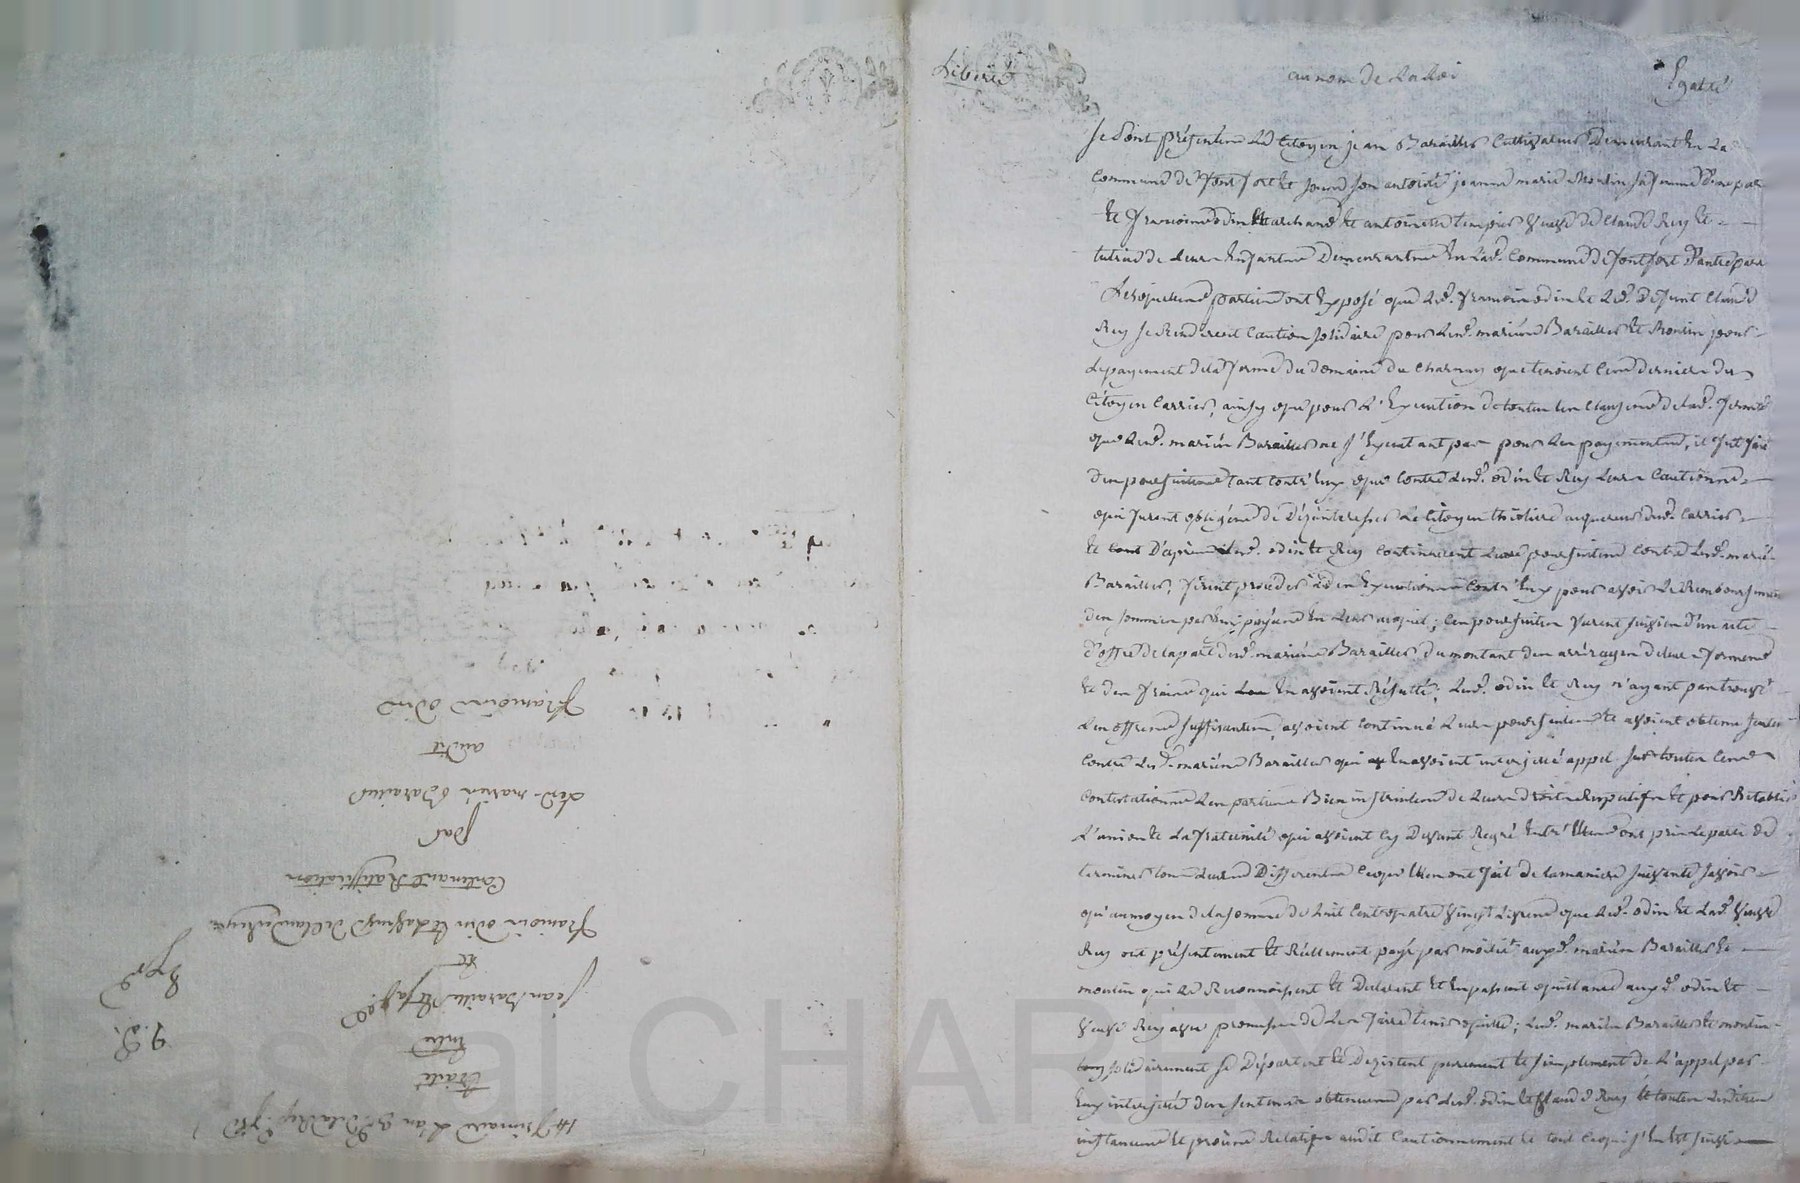 Liberté au nom de la Loi Egalité
Se sont présentés les Citoyens jean Barailler Cultivateur Demeurant En La
Commune de fontfort et sous son autorité jeanne marie Moulin sa femme d'une part
et françois odin Marchand et antoinette veuve de Claude Rey et
tutrice de leurs Enfants Demeurants En lad. Commune de fontfort D'autre part
Lesquelles parties ont Exposé que led. francois odin et led. Defunt Claude
Rey se Rendirent Caution solidaire pour lesd. mariés Barailler et Moulin pour
Le payement de la ferme du domaine du Charnay que tenoient Ces derniers du
Citoyen Carrier, ainsy que pour L'Execution de toutes les Clauses de lad. ferme
que lesd. mariés Barailler ne s'Executant pas pour les payements, il fut fait
des poursuittes tant contr'Eux que contre lesd. odin et Rey leurs Cautions
qui furent obligés de Désinteresser le Citoyen acquereur dud. Carrier
et D'après lesd. odin et Rey Continuerent leurs poursuittes Contre lesd. mariés
Barailler, firent proceder a des Executions Contr'Eux pour avoir le Remboursement
des sommes par Eux payées En leur acquit; Ces poursuittes furent suivies d'un acte
d'offre de la part desd. mariés Barailler du montant des arrérages de leurs fermes
et des fraix qui En avoient Résulté; lesd. odin et Rey n'ayant pas trouvé
Les offres suffisantes, avoient Continué leurs poursuittes et avoient obtenu sentence
Contre lesd. mariés Barailler qui En avoient interjetté appel sur toutes Ces
Contestations Les parties Bien instruittes de leurs droits Respectifs et pour Rétablir
L'union et La fraternité qui avoient Cy Devant Regné Entr'Elles ont pris le parti de
terminer tous leurs Differents Ce qu'Elles ont fait de la maniere suivante savoir
qu'au moyen de la somme de huit Cent quatre vingt Livres que led. odin et lad. veuve
Rey ont présentement et Réellement payé par moitié auxd. mariés Barailler et
moulin qui le Reconnoissent et Declarent et En passent quittance auxd. odin et
veuve Rey avec promesse de les faire tenir quitte; lesd. mariés Barailler et moulin
solidairement se Départent et Desistent purement et simplement de L'appel par
Eux interjetté des sentences obtenues par lesd. odin et Claude Rey et toutes Lesdittes
instances et procès Relatifs audit Cautionnement et tout Ce qui s'En Est suivi
14 frimaire L'an 3e de la Rep.
traité
Entre
jean Barailler et sa fe.
et
françois odin et La veuve de Claude Rey
Contenant Ratiffication
par
Lesd. mariés Barailler
audit
françois odin